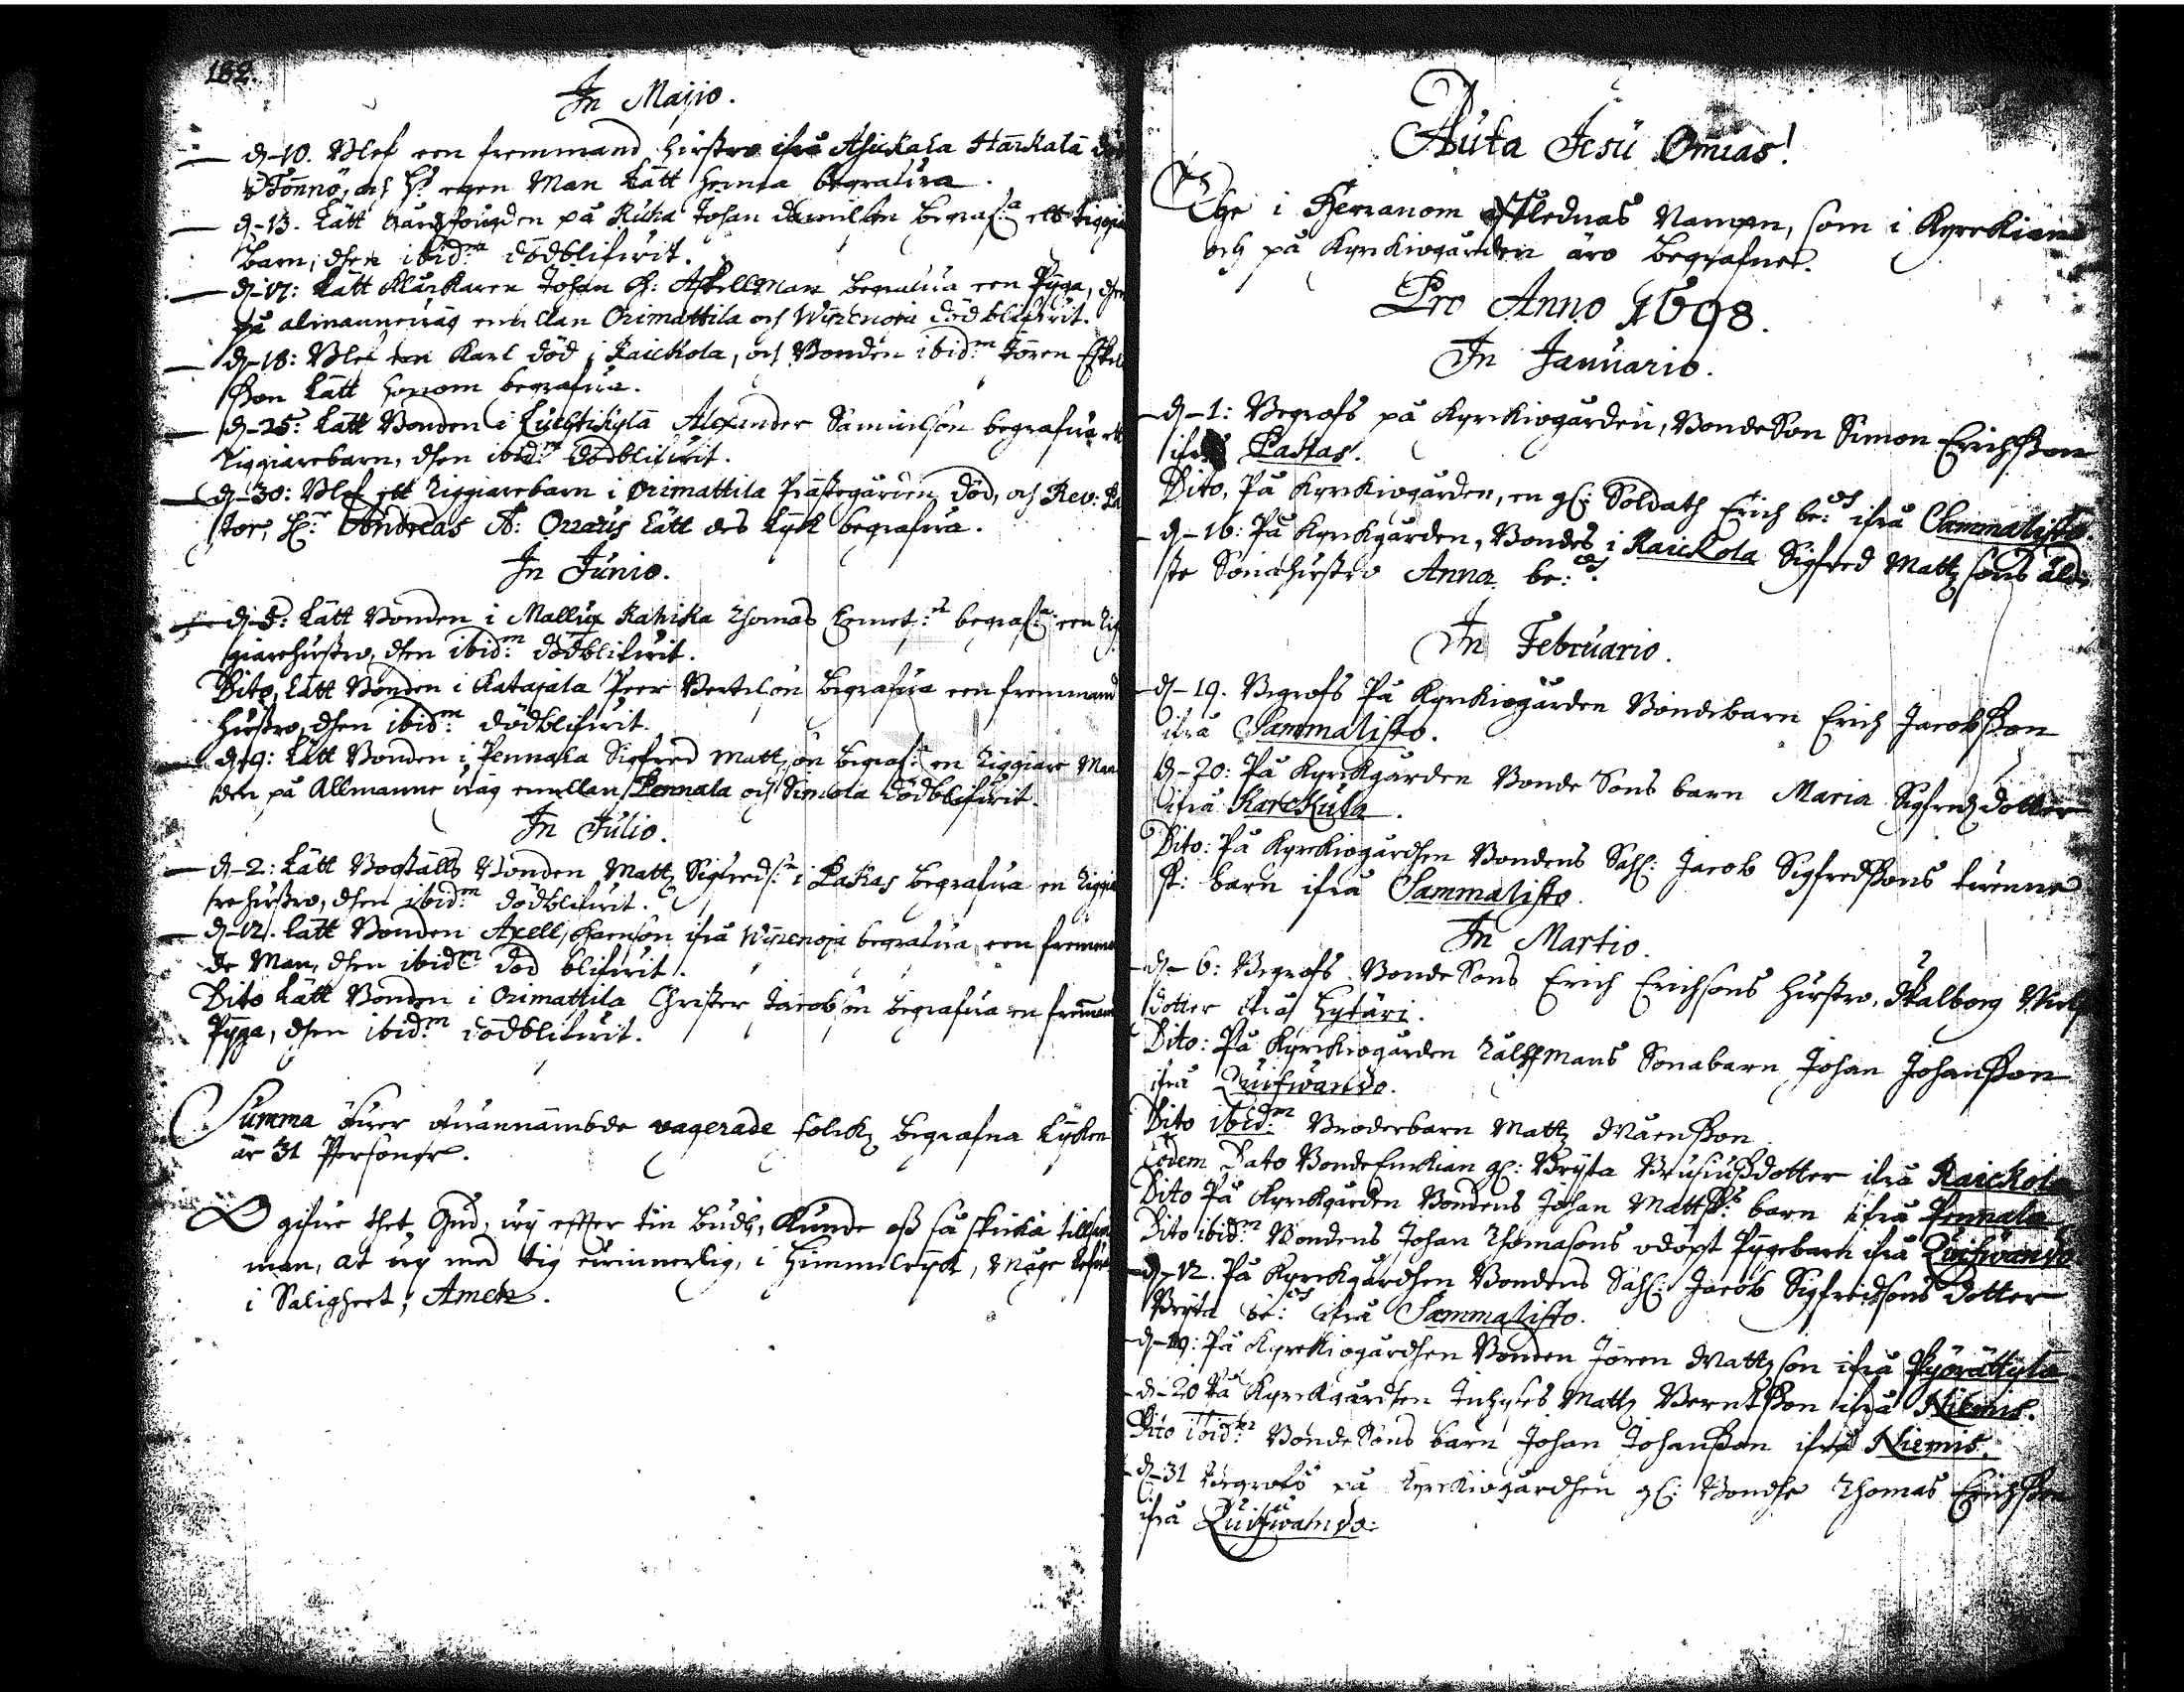 182.
In Majio.
d. 10. Blef een fremmand hustro ifrå Asickala Särkalä
Tönnö, och H:s egen Man lätt henna begrafua.
d. 13. Lätt Gårdzfougden på Ruha Johan Danilsson begraf:a ett tiggia
barn, dhen ibid:m dödblifwit.
d. 17: Lätt Klåckaren Johan H: Askellman begrafua een Pyga, dhen
på almannewäg emellan Orimattila och Wirenoja dödblifwit.
d. 18: Blef een Karl död i Raickola, och Bonden ibid:m Jören Eskel
sson Lätt honom begrafua.
d. 25: Lätt Bonden i Luchtikylä Alexander Samuelsson begrafua ett
Tiggiarebarn, dhen ibid:m dödblifwit.
d. 30: Blef ett Tiggiarebarn i Orimattila Prästegården död, och Rev: Pa
stor, H:r Andreas A: Orraeus Lätt des Lyk begrafua.
In Junio.
d. 5: Lätt Bonden i Mallux Kahika Thomas Clemet: begraf:a een Tig
giarehustro, dhen ibid:m dödblifwit.
Dito, Lätt Bonden i Katajala Peer Bertelsson begrafua een fremmand
hustro, dhen ibid:m dödblifwit.
d. 9: Lätt Bonden i Pennala Sigfred Mattzon begraf:a en Tiggiare Man
den på Allmanne wäg emellan Pennala och Simola dödblifwit.
In Julio.
d. 2: Lätt Boställs Bonden Mattz Sigfreds:n i Pakas begrafua en Tiggia
rehustro, dhen ibid:m dödblifwit.
d. 12. Lätt Bonden Axell ifrå Wirenoja begrafua een fremman
de Man, dhen ibid:m död blifwit.
Dito Lätt Bonden i Orimattila Christer Jacobsson begrafua en fremmand
Pyga, dhen ibid:m dödblifwit.
Summa öfuer ofuannämbde vagerade folckz begrafna Lyken
är 31 Personer.
O gifue thet Gud, wij effter tin budh, kunde oss så skicka tillsam
man, at wij med tig ewinnerlig, i Himmelryck, måge lefua
i Saligheet, Amen.
Auta Jesu Omias!
The i Herranom afflednas Nampn, som i Kyrckian
och på Kyrkiogården äro begrafne.
Pro Anno 1698.
In Januario.
d. 1: Begrofs på Kyrckiogården, Bonde Son Simon Erichsson
ifrå Pakas.
Dito, På Kyrckiogården, en gl: Soldath Erich be: ifrå Sammalisto.
d. 16: På Kyrckgården, Bondes i Raickola Sigfred Mattzsons äld
ste Sonahustro Anna be:
In Februario.
d. 19. Begrofs På Kyrckiogården Bondebarn Erich Jacobsson
ifrå Sammalisto.
d. 20: På Kyrckgården Bonde Sons barn Maria Sigfredzdotter
ifrå Karckula.
Dito: På Kyrckiogårdhen Bondens Sahl: Jacob Sigfredssons twenne
st: barn ifrå Sammalisto.
In Martio.
d. 6: Begrofs Bonde Sons Erich Erichsons hustro, Walborg
dotter ifrå Lytäri.
Dito: På Kyrckiogården Sonabarn Johan Johansson
ifrå Luifwando.
Dito ibid:m Broderbarn Mattz Måensson
Eodem Dato BondeEnckian gl: Bryta dotter ifrå Raickola
Dito På Kyrckgården Bondens Johan Matts:s barn ifrå Pennala.
Dito ibid:m Bondens Johan Thomasons odöpt Pygebarn ifrå Luifwando.
d. 12. På Kyrckgårdhen Bondens Sahl: Jacob Sigfredsons dotter
Bryta be: ifrå Sammalisto.
d. 19: På Kyrckiogårdhen Bonden Jören Mattzson ifrå Pyörättylä.
d. 20 På Kyrckgårdhen Mattz Berntsson ifrå Niemis.
Dito ibid:m Bonde Sons barn Johan Johansson ifrå Niemis.
d. 31 Begrofs på Kyrckiogårdhen gl: Bondhe Thomas Erichsson
ifrå Luifwando.